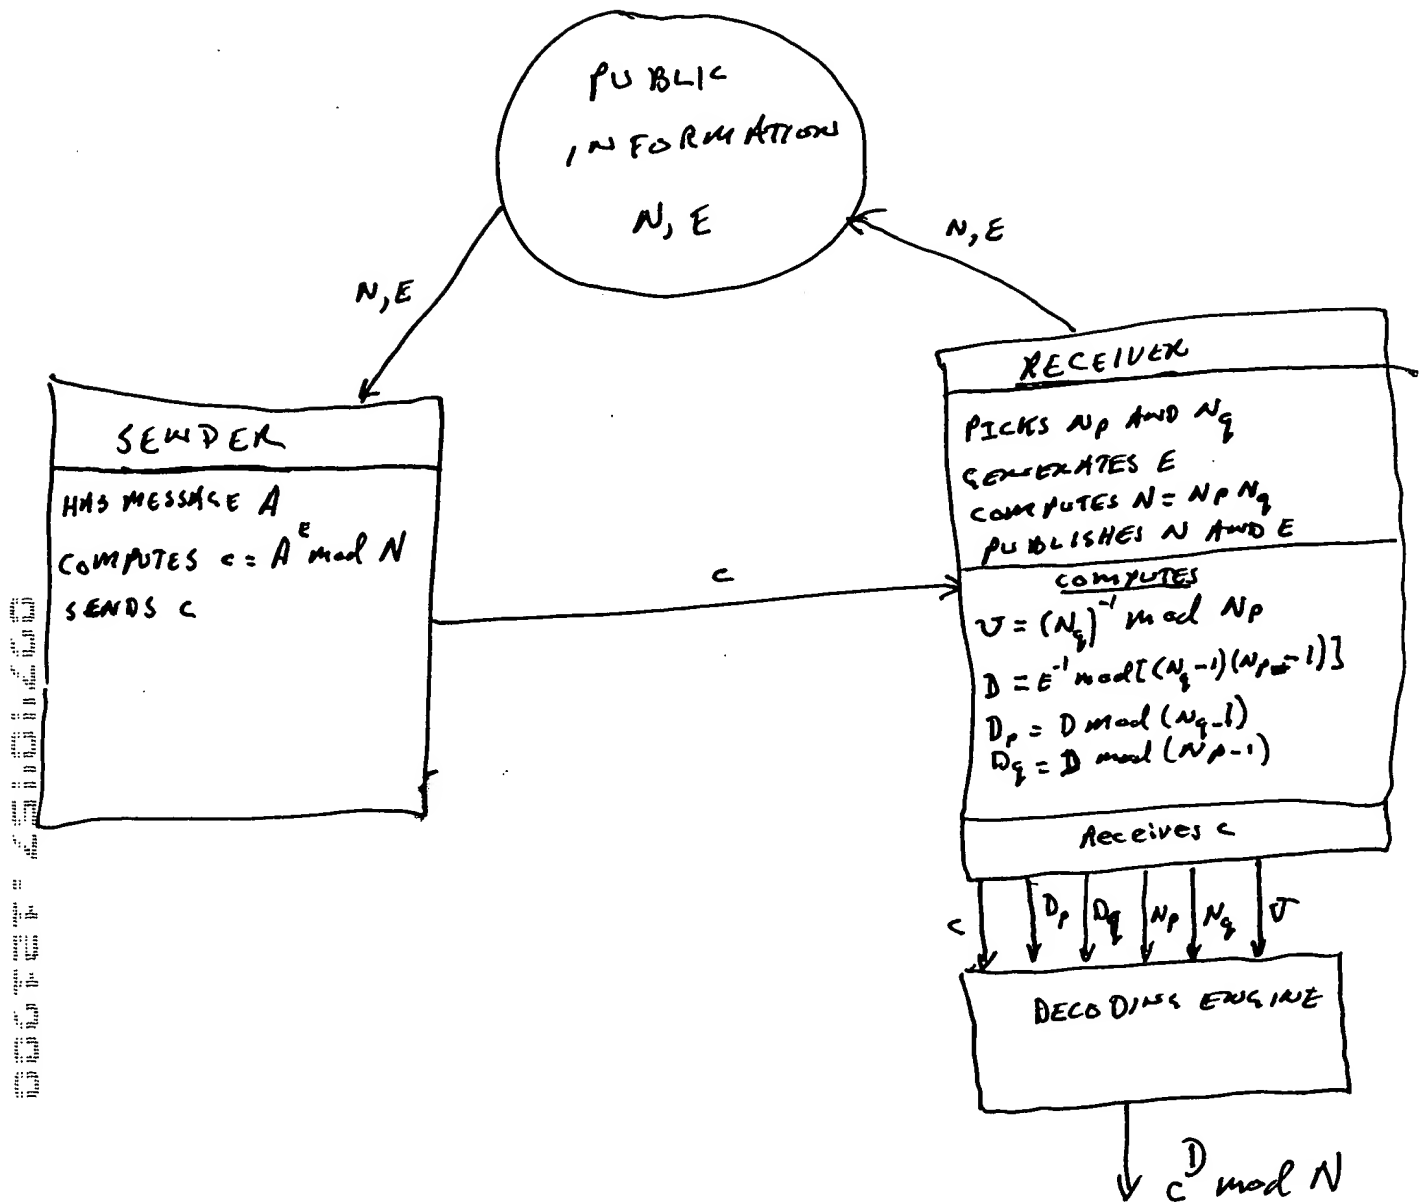 PUBLIC
INFORMATION
N, E
N, E
N, E
SENDER
HAS MESSAGE A
COMPUTES C = A^E mod N
SENDS C
C
RECEIVER
PICKS Np AND Nq
GENERATES E
COMPUTES N = Np Nq
PUBLISHES N AND E
COMPUTES
U = (Nq)^-1 mod Np
D = E^-1 mod [(Nq-1)(Np-1)]
Dp = D mod (Nq-1)
Dq = D mod (Np-1)
Receives C
C Dp Dq Np Nq U
DECODING ENGINE
C^D mod N